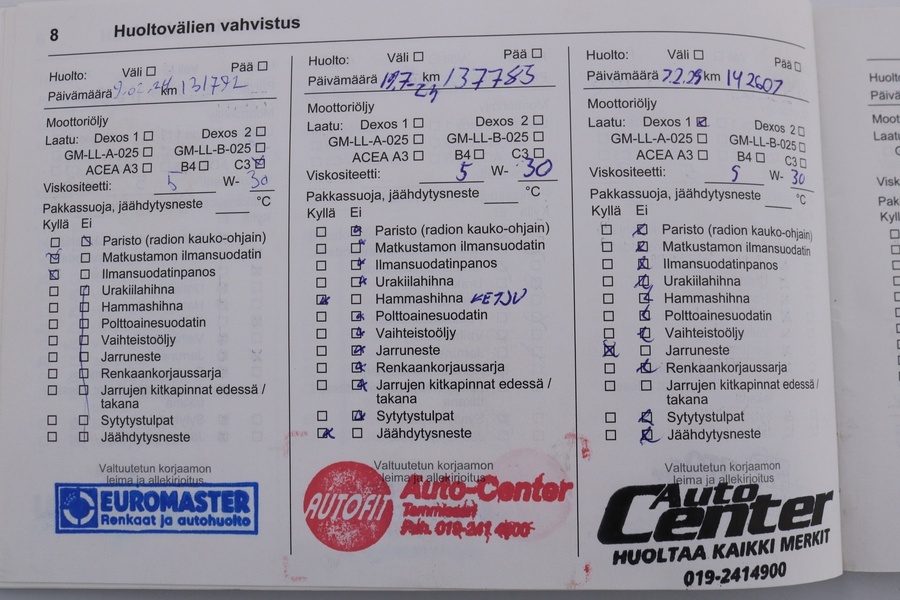 8 Huoltovälien vahvistus
Huolto: Väli Pää
Päivämäärä km 131792
Moottoriöljy
Laatu: Dexos 1 Dexos 2
GM-LL-A-025 GM-LL-B-025
ACEA A3 B4 C3
Viskositeetti: 5 W- 30
Pakkassuoja, jäähdytysneste °C
Kyllä Ei
Paristo (radion kauko-ohjain)
Matkustamon ilmansuodatin
Ilmansuodatinpanos
Urakiilahihna
Hammashihna
Polttoainesuodatin
Vaihteistoöljy
Jarruneste
Renkaankorjaussarja
Jarrujen kitkapinnat edessä /
takana
Sytytystulpat
Jäähdytysneste
Valtuutetun korjaamon
leima ja allekirjoitus
EUROMASTER
Renkaat ja autohuolto
Huolto: Väli Pää
Päivämäärä km 137783
Moottoriöljy
Laatu: Dexos 1 Dexos 2
GM-LL-A-025 GM-LL-B-025
ACEA A3 B4 C3
Viskositeetti: 5 W- 30
Pakkassuoja, jäähdytysneste °C
Kyllä Ei
Paristo (radion kauko-ohjain)
Matkustamon ilmansuodatin
Ilmansuodatinpanos
Urakiilahihna
Hammashihna KETJU
Polttoainesuodatin
Vaihteistoöljy
Jarruneste
Renkaankorjaussarja
Jarrujen kitkapinnat edessä /
takana
Sytytystulpat
Jäähdytysneste
Valtuutetun korjaamon
leima ja allekirjoitus
AUTOFIT Auto-Center
Tammisaari
Puh. 019-241 4900
Huolto: Väli Pää
Päivämäärä km 142607
Moottoriöljy
Laatu: Dexos 1 Dexos 2
GM-LL-A-025 GM-LL-B-025
ACEA A3 B4 C3
Viskositeetti: 5 W- 30
Pakkassuoja, jäähdytysneste °C
Kyllä Ei
Paristo (radion kauko-ohjain)
Matkustamon ilmansuodatin
Ilmansuodatinpanos
Urakiilahihna
Hammashihna
Polttoainesuodatin
Vaihteistoöljy
Jarruneste
Renkaankorjaussarja
Jarrujen kitkapinnat edessä /
takana
Sytytystulpat
Jäähdytysneste
Valtuutetun korjaamon
leima ja allekirjoitus
Auto
Center
HUOLTAA KAIKKI MERKIT
019-2414900